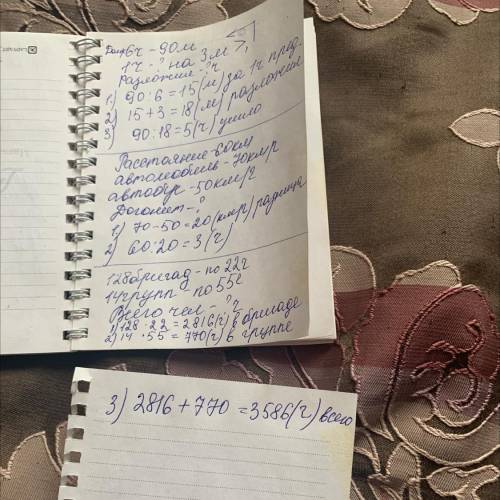 6ч - 90м
1ч - ? на 3м >
Разложил ? ч
1) 90 : 6 = 15 (м) за 1ч прод.
2) 15 + 3 = 18 (м) разложил
3) 90 : 18 = 5 (ч) ушло
Расстояние - 60км
автомобиль - 70км/ч
автобус - 50км/ч
Догонит - ?
1) 70 - 50 = 20 (км/ч) разница
2) 60 : 20 = 3 (ч)
128 бригад - по 22ч
14 групп - по 55ч
Всего чел - ?ч
1) 128 · 22 = 2816 (ч) в бригаде
2) 14 · 55 = 770 (ч) в группе
3) 2816 + 770 = 3586 (ч) всего